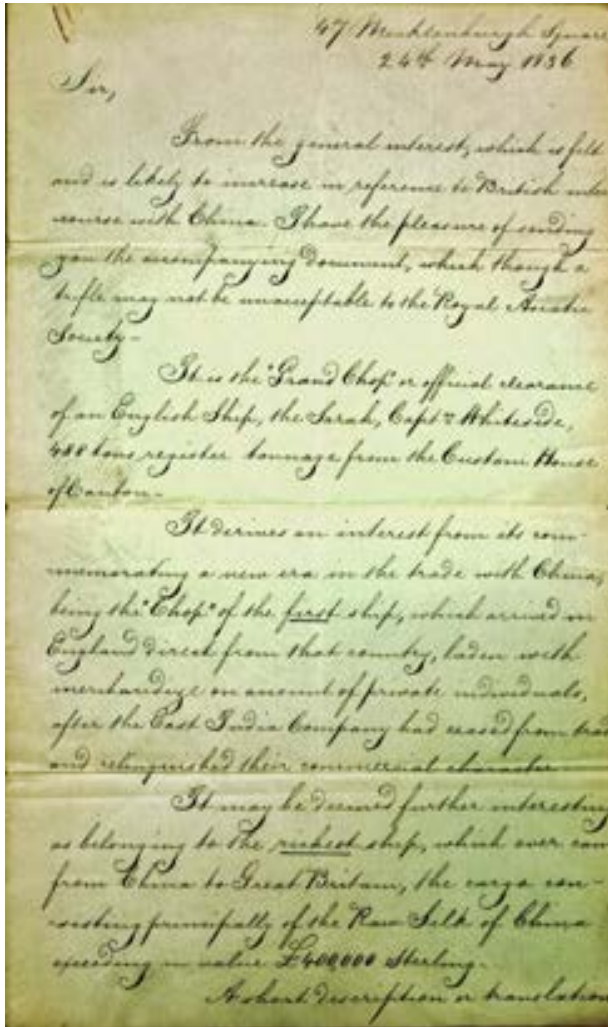 47 Mecklenburgh Square
24th May 1836
Sir,
From the general interest, which is felt
and is likely to increase in reference to British inter
course with China. I have the pleasure of sending
you the accompanying document, which though a
trifle may not be unacceptable to the Royal Asiatic
Society -
It is the "Grand Chop" or official clearance
of an English Ship, the Sarah, Captn Whiteside,
488 tons register tonnage from the Custom House
of Canton -
It derives an interest from its com-
memorating a new era in the trade with China,
being the "Chop" of the first ship, which arrived in
England direct from that country, laden with
merchandize on account of private individuals,
after the East India Company had ceased from trad
and relinquished their commercial character
It may be deemed further interesting
as belonging to the richest ship, which ever cam
from China to Great Britain, the cargo con-
sisting principally of the Raw Silk of China
exceeding in value £400,000 Sterling -
A short description or translation